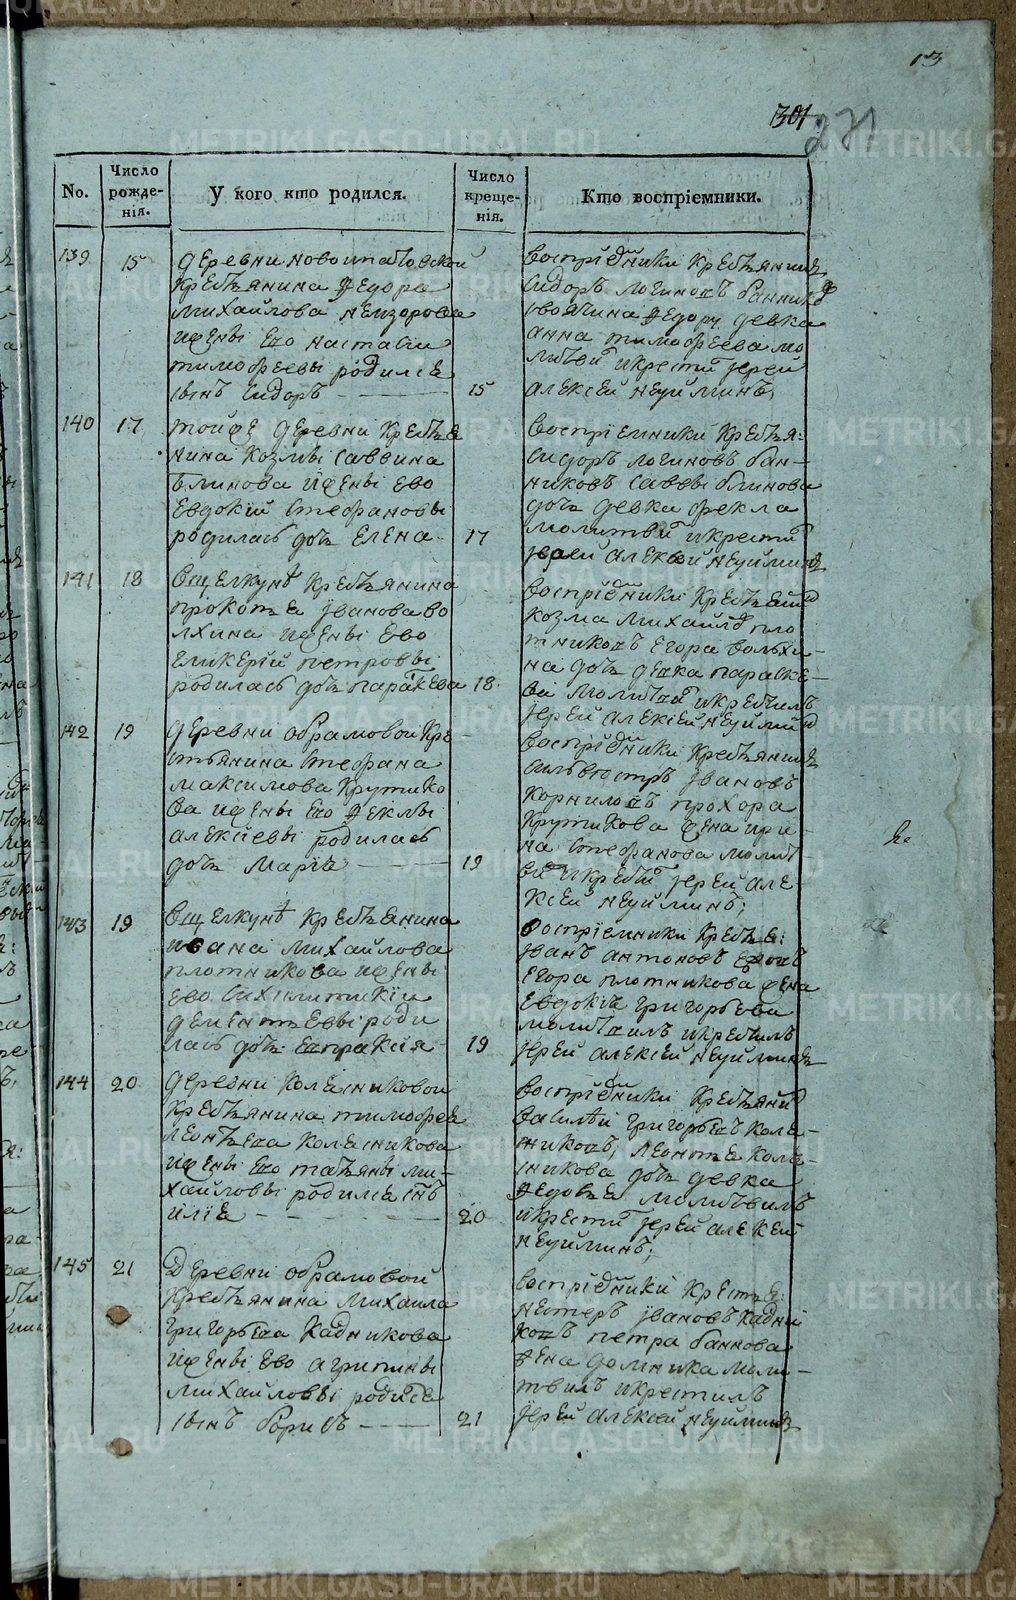 13
301
271
No.
Число рожде-нія.
У кого кто родился.
Число креще-нія.
Кто воспріемники.
139 15
крестьянина Федора
михайлова
ижены ево настасіи
тимофеевы родился
сынъ Сидоръ 15
воспріемники крестьянинъ
Сидоръ логиновъ
Федору девка
анна тимофеева мо
литвилъ икрестилъ іерей
алексей неуйминъ,
140 17
тойже деревни крестья
нина козмы саввина
блинова ижены ево
Евдокіи Стефановы
родилась дочь Елена 17
воспріемники крестья:
Сидоръ логиновъ бан-
никовъ саввы блинова
дочь девка фекла
молитвилъ икрестилъ
іерей алексей неуйминъ
141 18
вщелкунѣ крестьянина
прокопья іванова во
лхина ижены ево
гликеріи петровы
родилась дочь параскева 18
воспріемники
козма михайловъ пло
тниковъ Егора вольхи-
на дочь девка параске-
ва молитвилъ икрестилъ
іерей алексей неуйминъ
142 19
деревни абрамовой кре-
стьянина Стефана
максимова крутико
ва ижены ево Феклы
алексіевы родилась
дочь марія 19
воспріемники крестьянинъ
Сильвестръ івановъ
корниловъ прохора
крутикова жена ири-
на Стефанова молит-
вилъ икрестилъ іерей але
ксей неуйминъ;
143 19
вщелкунѣ крестьянина
ивана михайлова
плотникова ижены
ево
дементьевы роди
лась дочь Евпраксія 19
воспріемники крестья:
іванъ антоновъ
Егора плотникова жена
Евдокія григорьева
молитвилъ икрестилъ
іерей алексей неуйминъ
144 20
деревни колесниковой
крестьянина тимофея
леонтьева колесникова
ижены ево татьяны ми-
хайловы родился сынъ
илія 20
воспріемники крестьянинъ
василій григорьевъ коле-
никовъ, леонтья коле-
сникова дочь девка
Федосья молитвилъ
икрестилъ іерей алексей
неуйминъ;
145 21
деревни абрамовой
крестьянина михаила
григорьева кадникова
ижены ево агрипины
михайловы родился
сынъ борисъ 21
воспріемники крестья:
нестеръ івановъ кадни
ковъ петра
жена домника моли-
твилъ икрестилъ
іерей алексей неуйминъ
METRIKI.GASO-URAL.RU